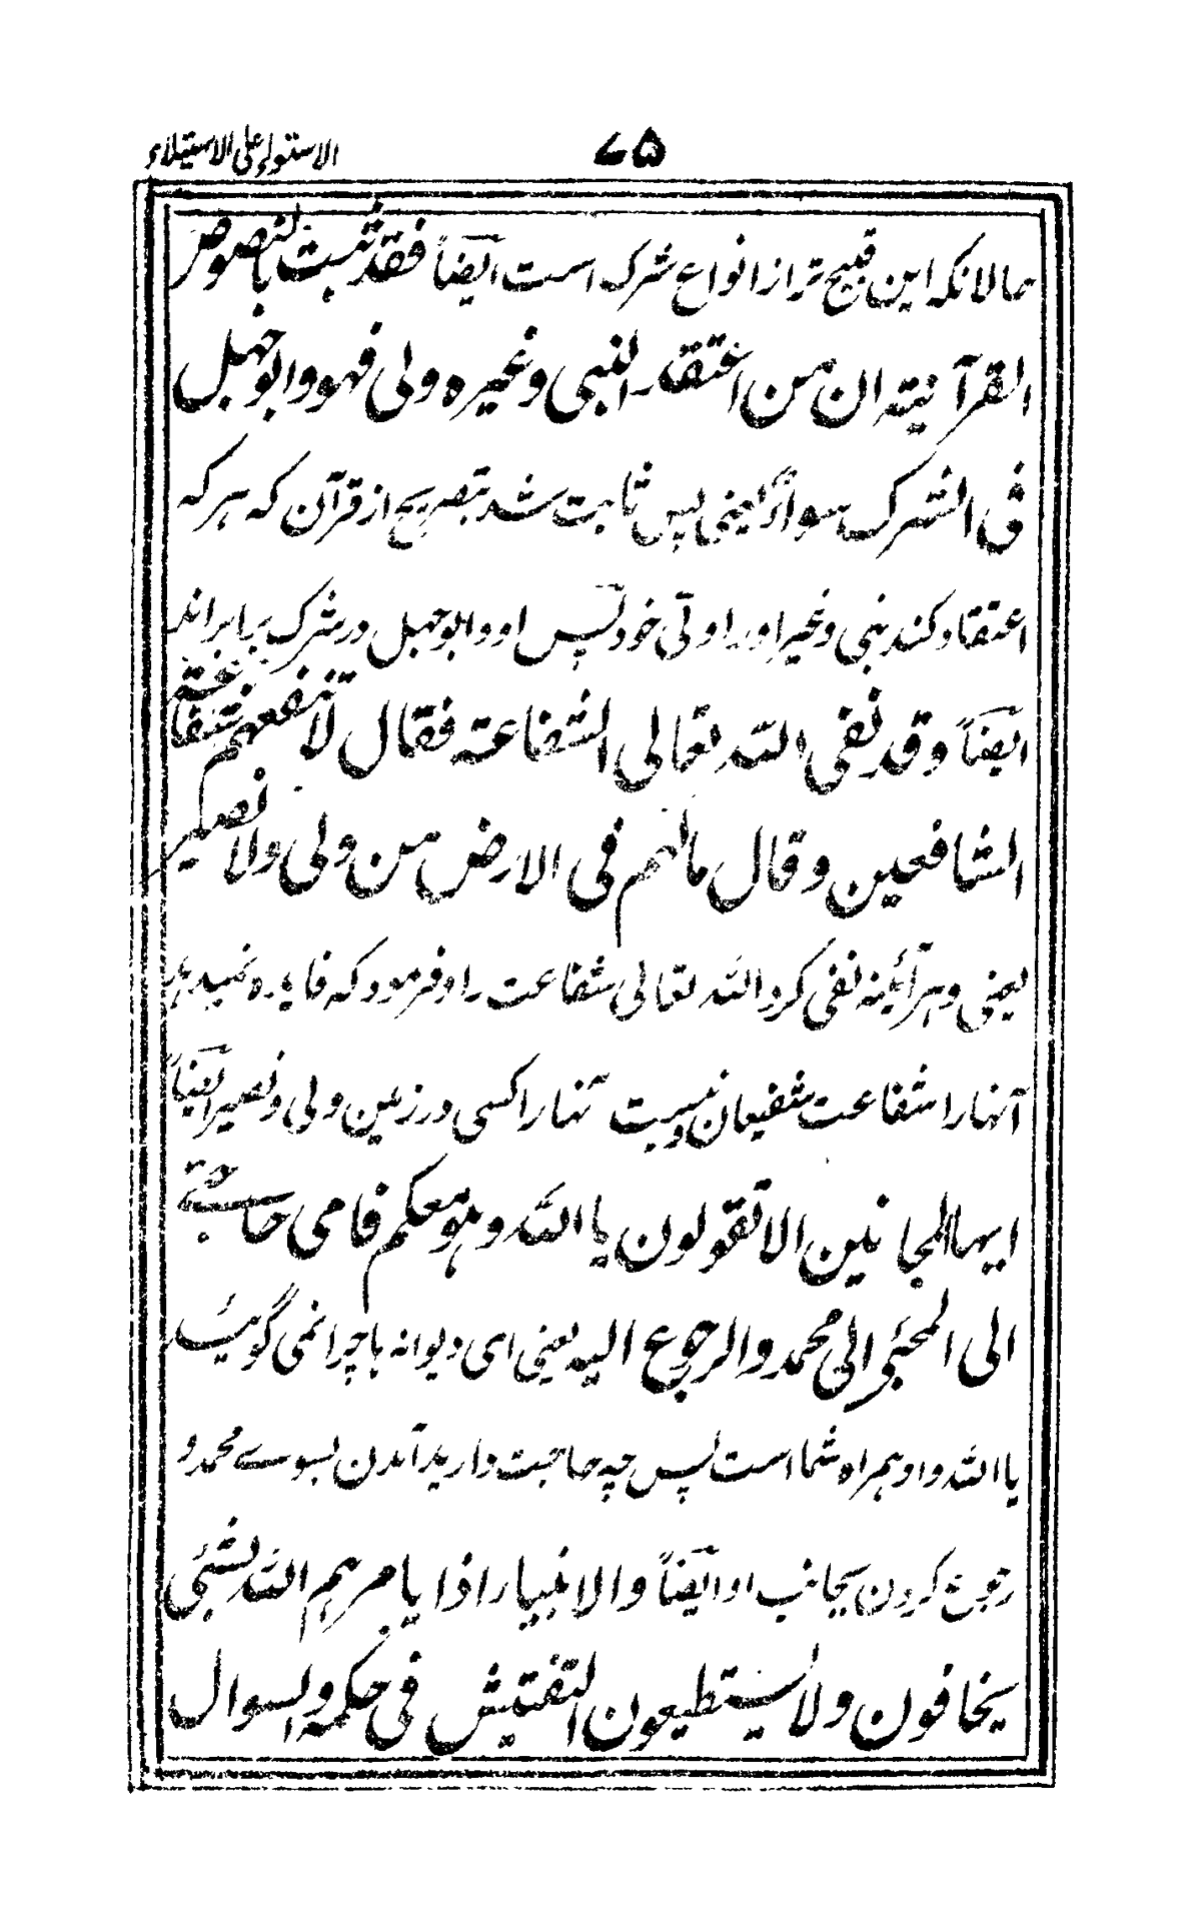 ۷۵
الاستواء علی الاستیلاء
حالانکه این قبیح تر از انواع شرک است ایضاً فقد ثبت بالنصوص
القرآنیته ان من اعتقد النبی وغیره ولی فهو وابو جهل
فی الشرک سواءٌ یعنی پس ثابت شد بتصریح از قرآن که هر که
اعتقاد کند نبی وغیر او را ولی خود پس او وابوجهل در شرک برابر اند
ایضاً وقد نفی الله تعالی الشفاعته فقال لا تنفعهم شفاعته
الشافعین وقال مالهم فی الارض من ولی ولا نصیر
یعنی وهر آئینه نفی کرد الله تعالی شفاعت را وفرمود که فایده نمیدهد
آنها را شفاعت شفیعان ونیست آنها را کسی در زمین ولی ونصیر ایضاً
ایها المجانین الا تقولون یا الله وهو معکم فامی حاجته
الی المجئی الی محمد والرجوع الیه یعنی ای دیوانه ها چرا نمی گوئید
یا الله واو همراه شما است پس چه حاجت دارید آمدن بسوے محمد و
رجوع کردن بجانب او ایضاً والانبیاء اذا یامرهم الله بشئی
یخافون ولا یستطیعون التفتیش فی حکمه والسوال